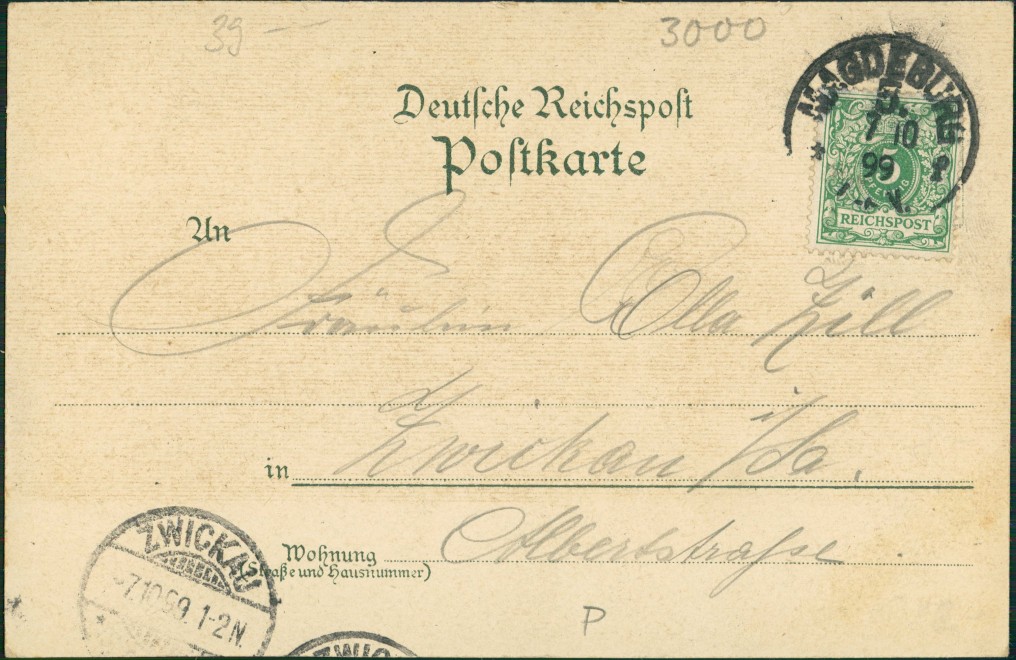 39 –
3000
Deutsche Reichspost
Postkarte
MAGDEBURG
5.
7 10
99
5
PFENNIG
REICHSPOST
An
Fräulein Ella Zill
in Zwickau i/Sa.
Wohnung Albertstraße
(Straße und Hausnummer)
ZWICKAU
7.10.99. 1-2N.
P
ZWICKAU